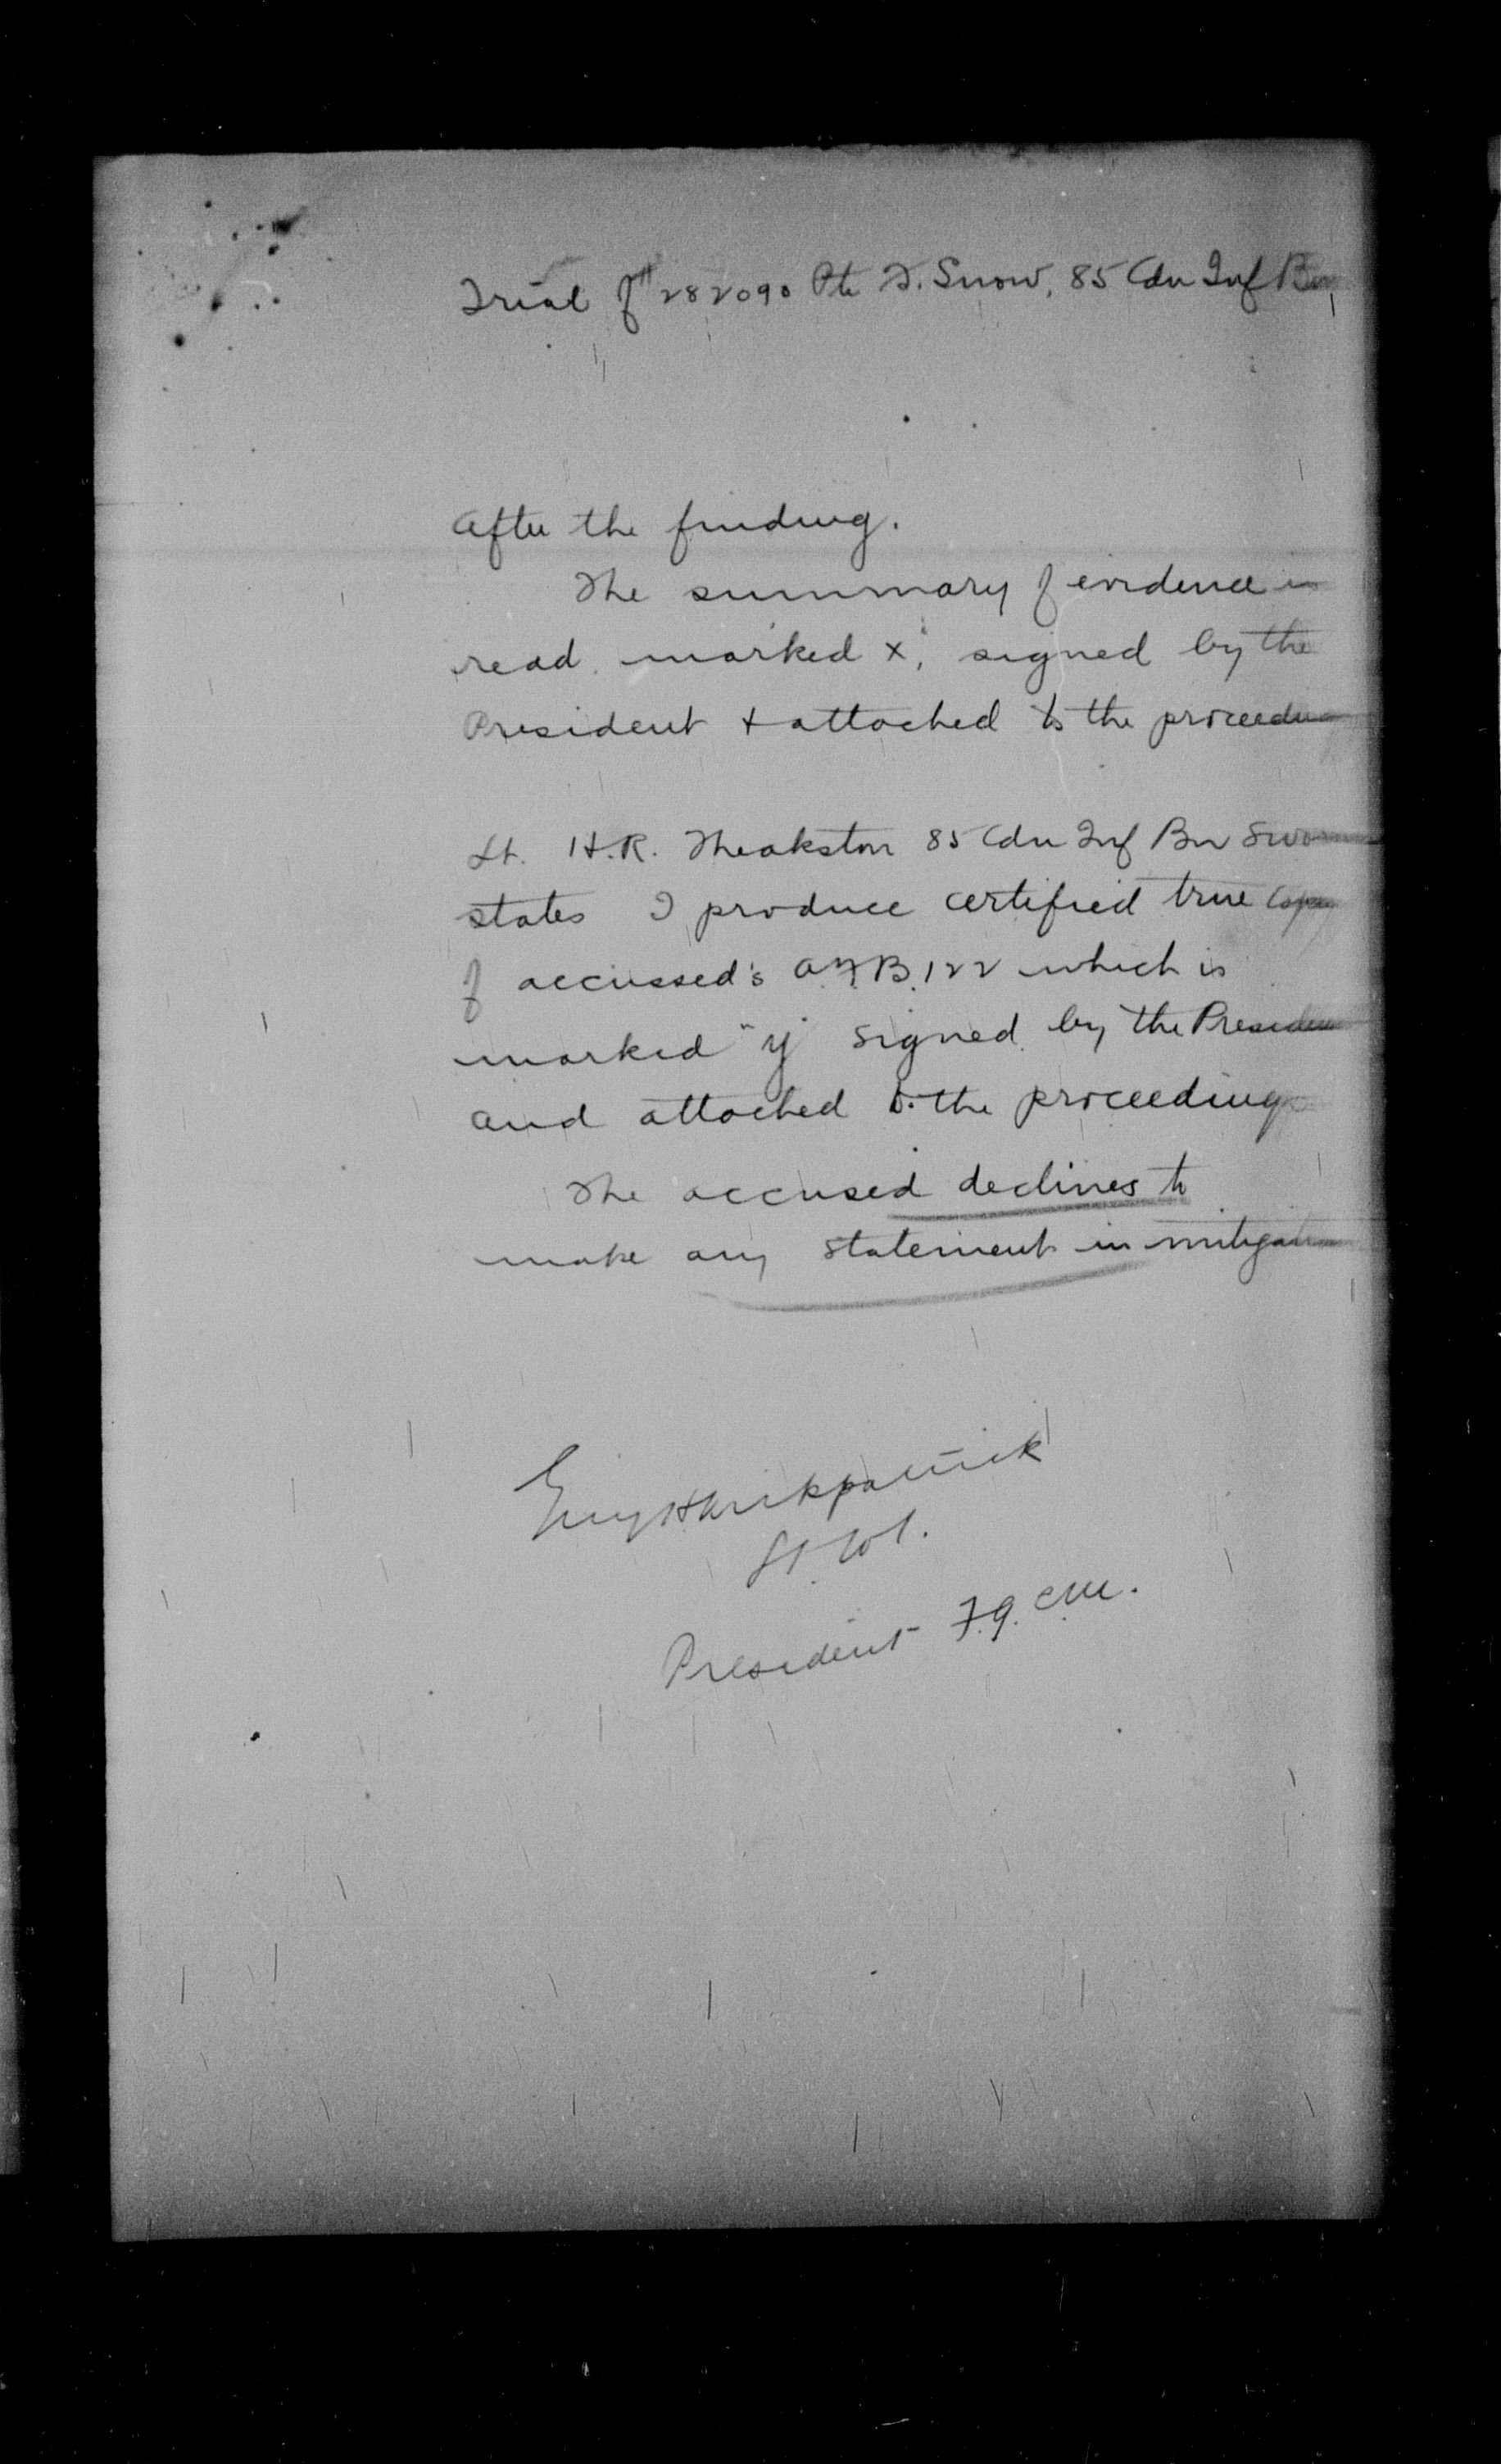 Trial of # 282090 Pte F. Snow, 85 Cdn Inf Bn
After the finding.
The summary of evidence is
read, marked X, signed by the
President + attached to the proceeding
Lt. H.R. Theakston 85 Cdn Inf Bn Sworn
states I produce certified true copy
of accussed's A.F.B. 122 which is
marked "Y" signed by the President
and attached to the proceedings
The accused declines to
make any statement in mitigation
Guy H Kirkpatrick
Lt. Col.
President F.G.C.M.